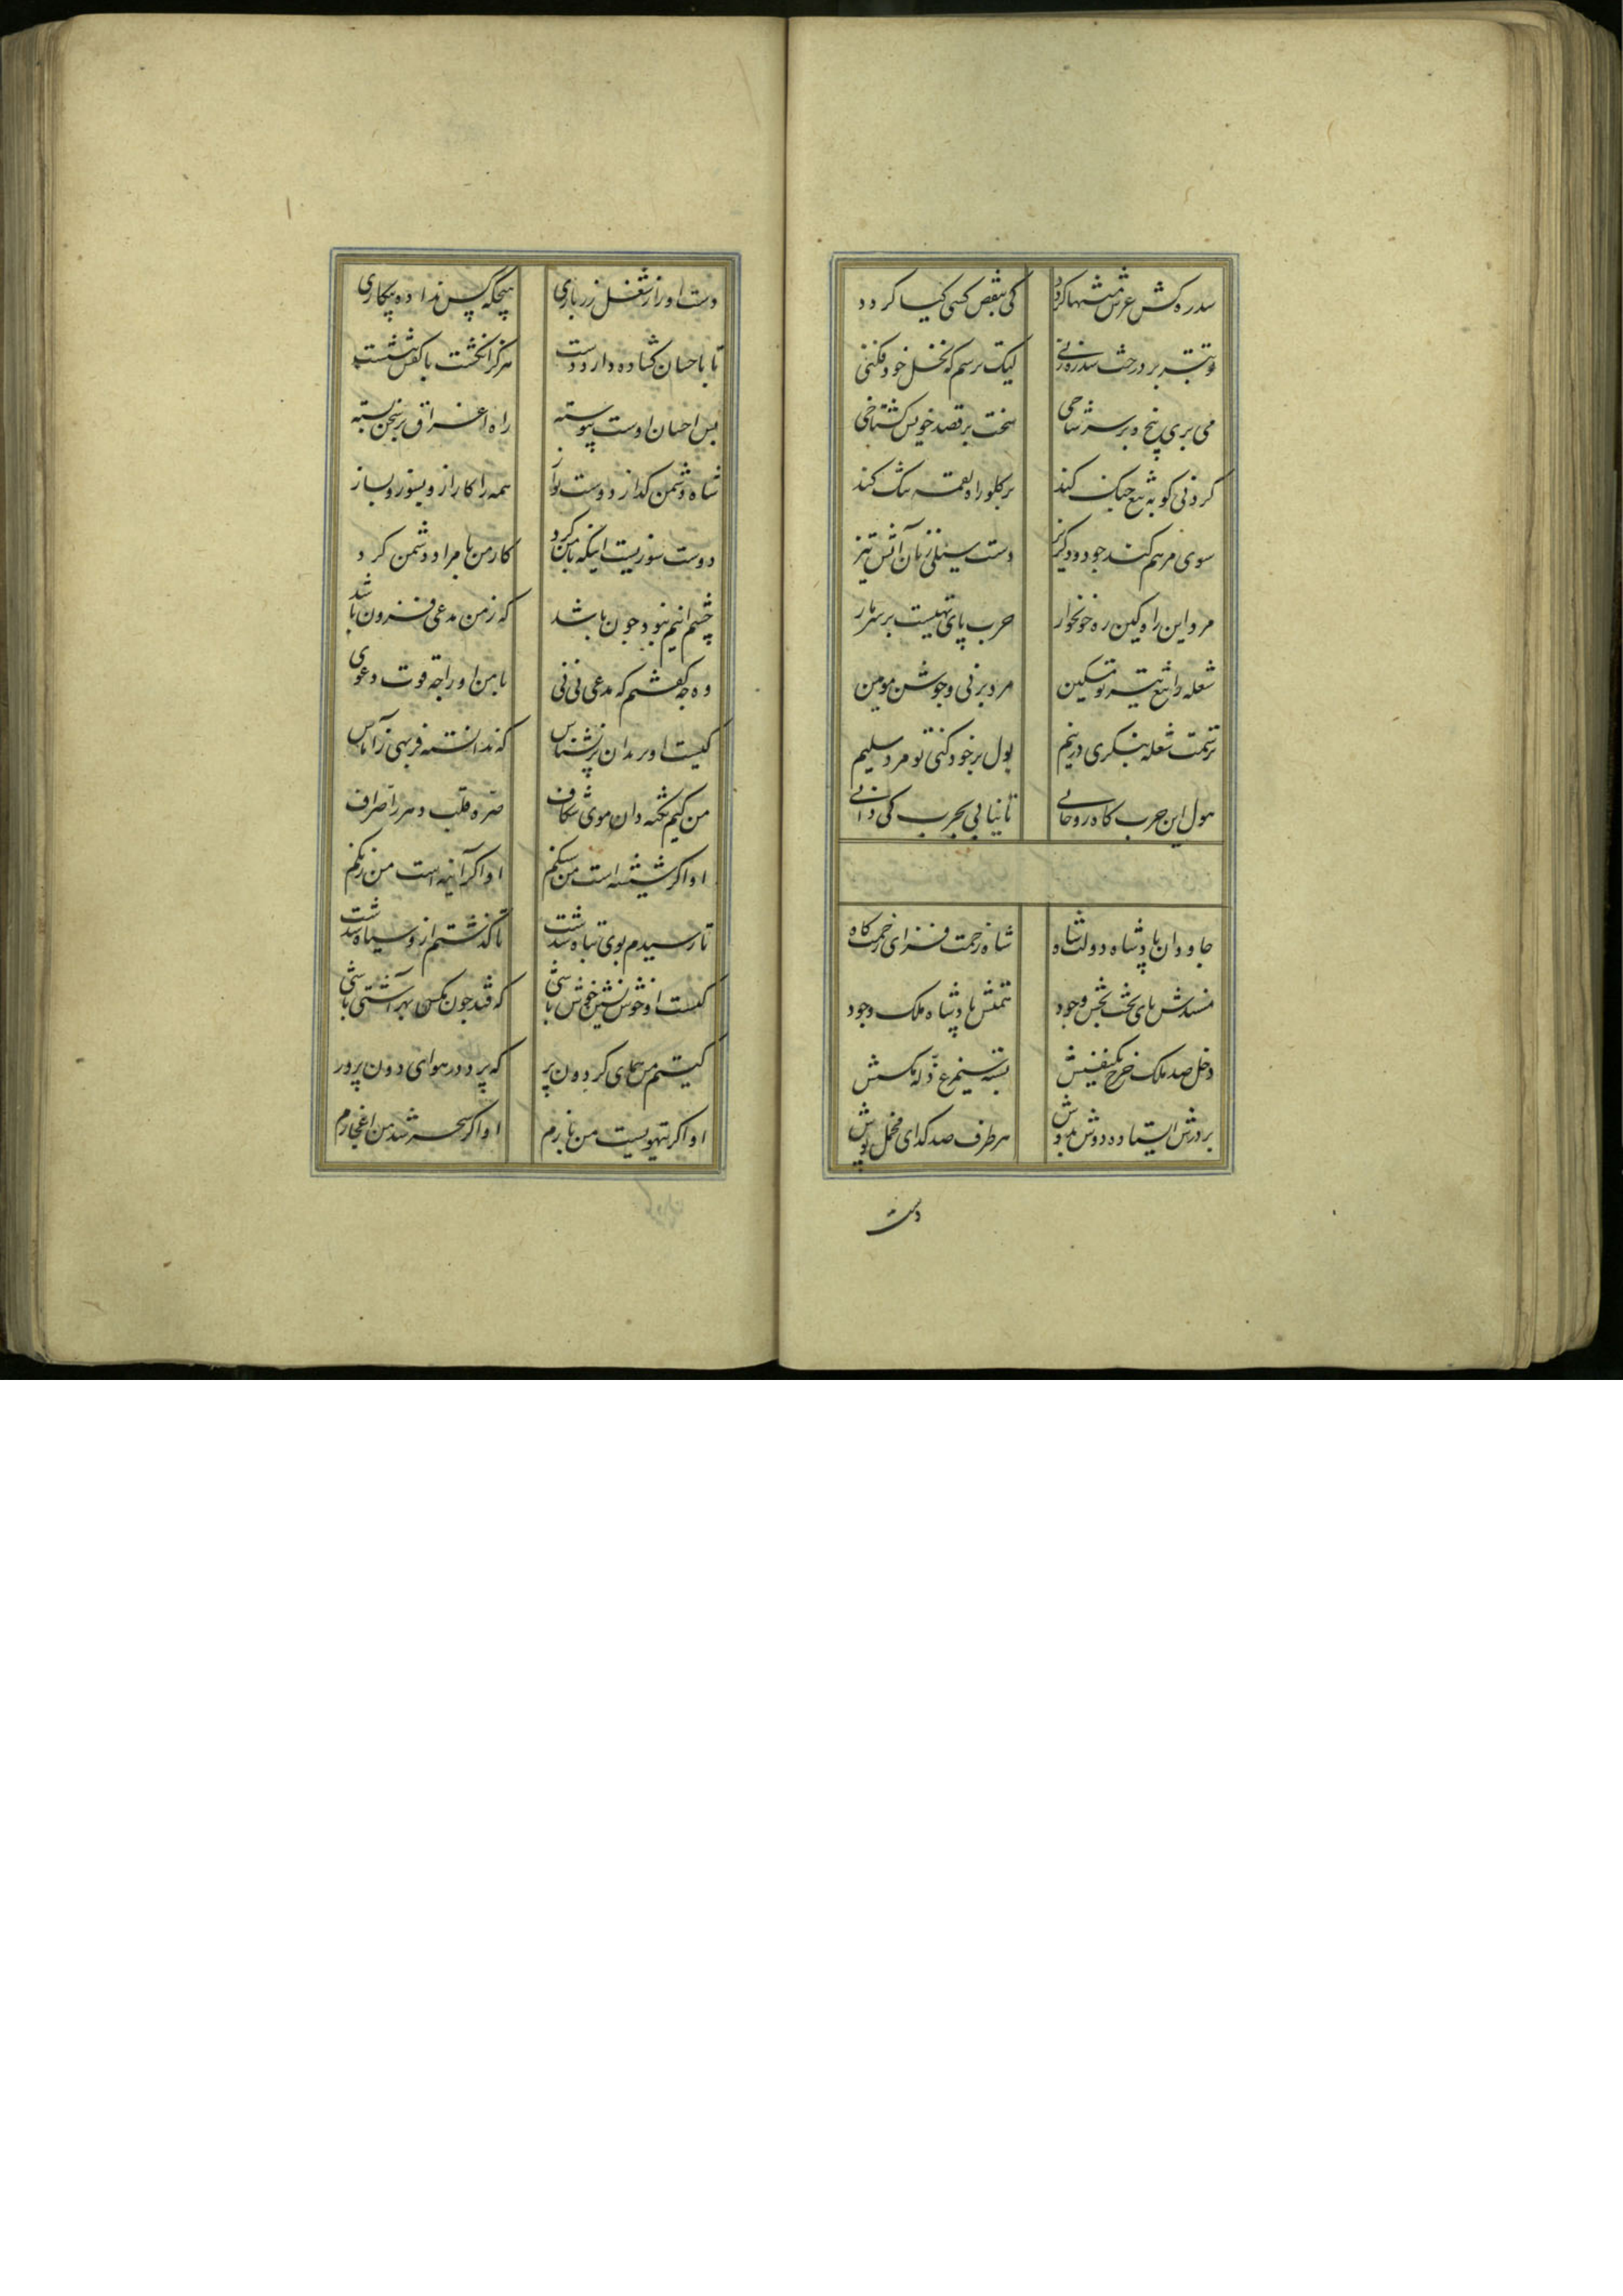 سدره کش عرش منتهیها کردد کی بنقص کسی کیا کردد
تو تبر بر درخت سدره زنی لیک ترسم که نخل خود فکنی
می بری پنجه بر سر شاخی سخت بر قصد خویش کستاخی
کردنی کو به تیغ جنک کند بر کلو راه لقمه تنک کند
سوی مرهم کند جو دود کریز دست سیلی زبان آتش تیز
مرو این راه کین ره خونخوار حرب پای تهیست بر سر مار
شعله را تیغ تیز تو تسکین مرد برنی و جوشن مومین
شعله بنکری در نیم بول بر خود کنی تو مرد سلیم
هول این حرب کاه روحانی تا نیایی بحرب کی دانی
جاودان پادشاه دولت شاه شاه رحمت فزای زحمت کاه
مسندش پای تخت بخش وجود پادشاه ملک وجود
دخل صد ملک خرج یک نفسش بسته سیمرغ ذله مکسش
بر درش ایستاده دوش بدوش هر طرف صد کدای مخمل پوش
دست
دست او را ز شغل زرباری هیچکه کس نداده بیکاری
تا باحسان کشاده دارد دست هرکز انکشت با کفش ننشست
بس احسان اوست پیوسته راه اغراق بر سخن بسته
شاه دشمن کداز دوست نواز همه را کار ازو بسوز و بساز
دوست سوزیست اینکه با من کرد کار من با مراد دشمن کرد
چشم اینم نبود جون باشد که ز من مدعی فزون باشد
وه جه کفتم که مدعی نی نی با من او را جه قوت دعوی
کیست او بر بدان نرشناس که ندانسته فربهی ز آماس
من کیم نکته دان موی شکاف سره و قلب دهر را صراف
او اکر شیشه است من سنکم او اکر آینه است من زنکم
تا رسیدم بوی تباه شدست تا کذشتم ازو سیاه شدست
کیست او خوش نشین خوش باشی که فتد جون مکس بهر آشی
کیستم من همای کردون پر که پرد در هوای دون پرور
او اکر تیهویست من بازم او اکر سحر شد من اعجازم